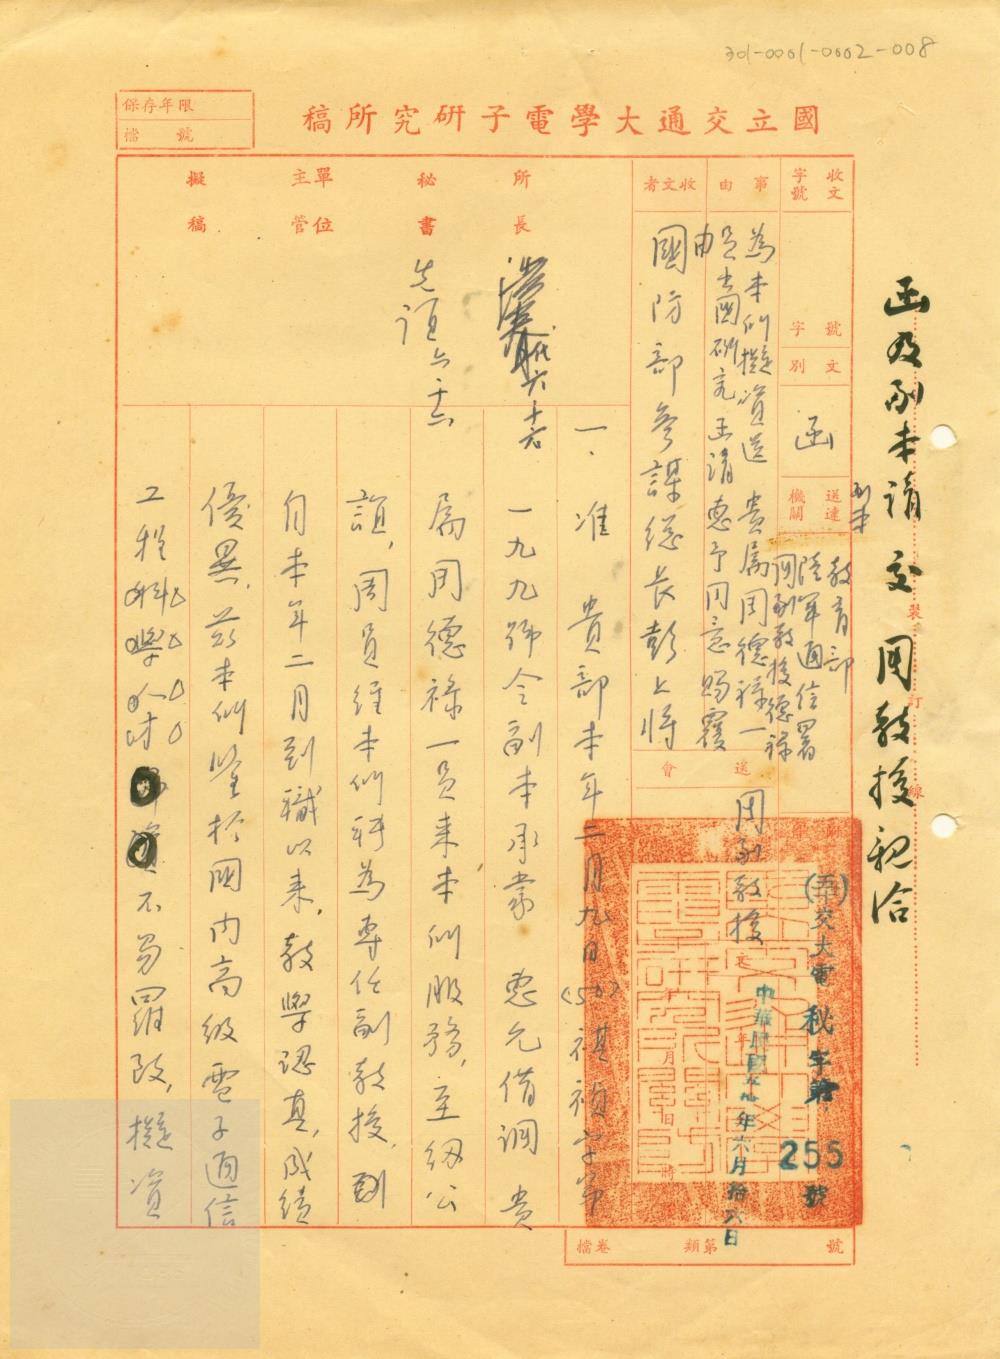 301-0001-0002-008
國立交通大學電子研究所稿
保存年限
檔號
函及副本請交周教授親洽
裝訂線
收文
字號
字號
文別
函
送達機關
副本
教育部
陸軍通信署
周副教授德祿
事由
為本所擬資送 貴屬周德祿一
員出國研究函請惠予同意賜覆
由
收文者
國防部參謀總長彭上將
送會
周副教授
附件
(五〇)交大電秘字第255號
中華民國五十年六月拾六日
所長
秘書
先誼 六、十六
單位主管
擬稿
代
六、十六
一、准 貴部本年二月九日(50)祺禎字第
一九九號令副本承蒙 惠允借調 貴
屬周德祿一員來本所服務,至紉公
誼,周員經本所聘為專任副教授,
自本年二月到職以來,教學認真,成績
優異,茲本所鑒於國內高級電子通信
工程科學人才 不易羅致,擬資
檔卷 第類 號